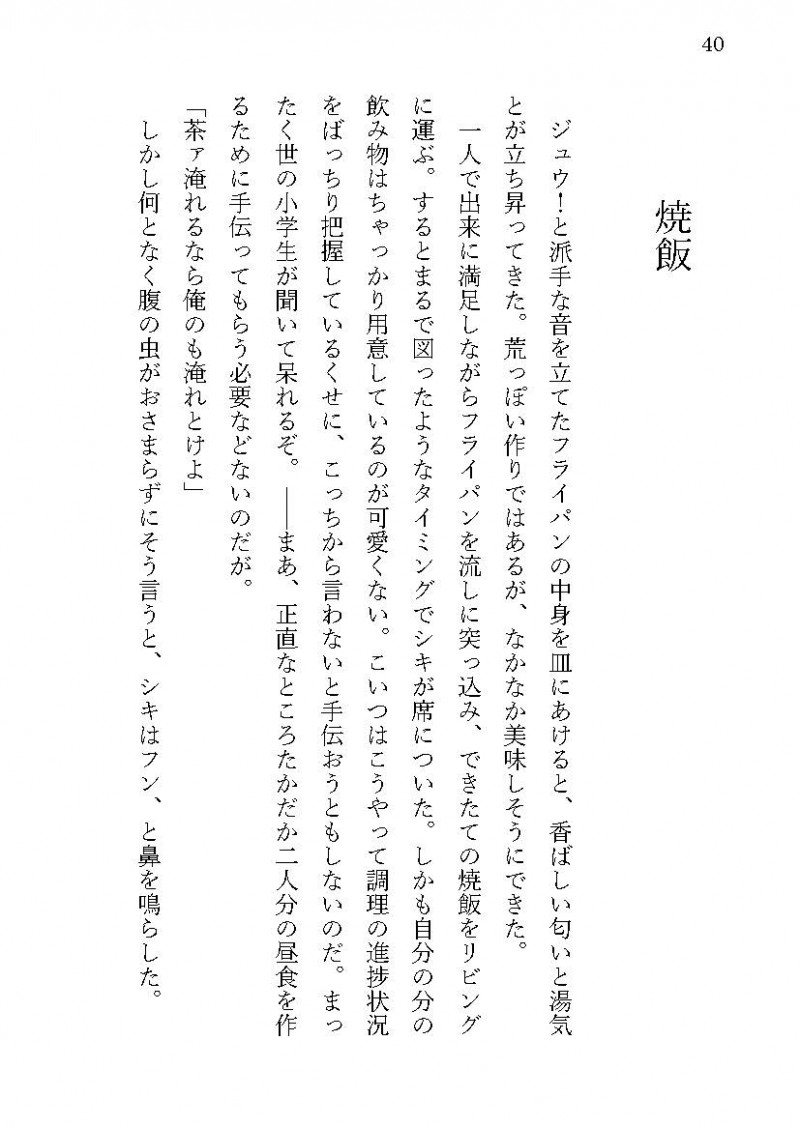 40
焼飯
ジュウ！と派手な音を立てたフライパンの中身を皿にあけると、香ばしい匂いと湯気
とが立ち昇ってきた。荒っぽい作りではあるが、なかなか美味しそうにできた。
一人で出来に満足しながらフライパンを流しに突っ込み、できたての焼飯をリビング
に運ぶ。するとまるで図ったようなタイミングでシキが席についた。しかも自分の分の
飲み物はちゃっかり用意しているのが可愛くない。こいつはこうやって調理の進捗状況
をばっちり把握しているくせに、こっちから言わないと手伝おうともしないのだ。まっ
たく世の小学生が聞いて呆れるぞ。――まあ、正直なところたかだか二人分の昼食を作
るために手伝ってもらう必要などないのだが。
「茶ァ淹れるなら俺のも淹れとけよ」
しかし何となく腹の虫がおさまらずにそう言うと、シキはフン、と鼻を鳴らした。